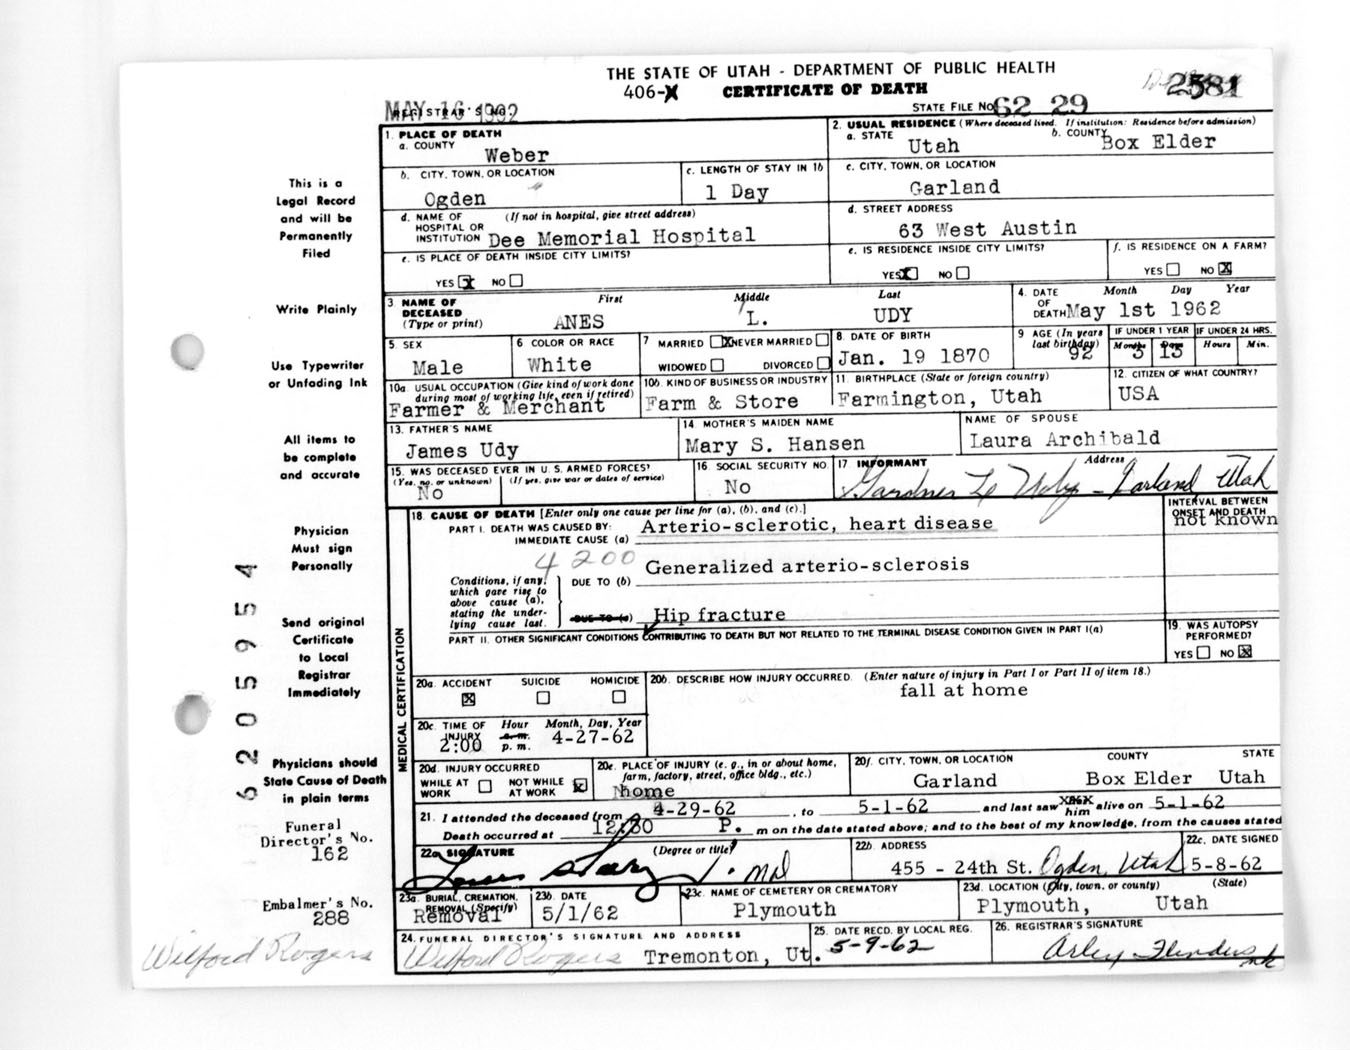 THE STATE OF UTAH - DEPARTMENT OF PUBLIC HEALTH
406-X CERTIFICATE OF DEATH
2581
MAY 16 1962
REGISTRAR'S NO.
STATE FILE NO. 62 29
1. PLACE OF DEATH
a. COUNTY
Weber
2. USUAL RESIDENCE (Where deceased lived. If institution: Residence before admission)
a. STATE
Utah
b. COUNTY
Box Elder
b. CITY, TOWN, OR LOCATION
Ogden
c. LENGTH OF STAY IN 1b
1 Day
c. CITY, TOWN, OR LOCATION
Garland
d. NAME OF HOSPITAL OR INSTITUTION (If not in hospital, give street address)
Dee Memorial Hospital
d. STREET ADDRESS
63 West Austin
e. IS PLACE OF DEATH INSIDE CITY LIMITS?
YES X NO
e. IS RESIDENCE INSIDE CITY LIMITS?
YES X NO
f. IS RESIDENCE ON A FARM?
YES NO X
3. NAME OF DECEASED (Type or print)
First Middle Last
ANES L. UDY
4. DATE OF DEATH
Month Day Year
May 1st 1962
5. SEX
Male
6 COLOR OR RACE
White
7 MARRIED X NEVER MARRIED
WIDOWED DIVORCED
8. DATE OF BIRTH
Jan. 19 1870
9 AGE (In years last birthday)
92
IF UNDER 1 YEAR
Months Days
3 13
IF UNDER 24 HRS.
Hours Min.
10a. USUAL OCCUPATION (Give kind of work done during most of working life, even if retired)
Farmer & Merchant
10b. KIND OF BUSINESS OR INDUSTRY
Farm & Store
11. BIRTHPLACE (State or foreign country)
Farmington, Utah
12. CITIZEN OF WHAT COUNTRY?
USA
13. FATHER'S NAME
James Udy
14. MOTHER'S MAIDEN NAME
Mary S. Hansen
NAME OF SPOUSE
Laura Archibald
15. WAS DECEASED EVER IN U. S. ARMED FORCES?
(Yes, no, or unknown) (If yes, give war or dates of service)
No
16. SOCIAL SECURITY NO.
No
17. INFORMANT Address
Gardner L Udy - Garland Utah
MEDICAL CERTIFICATION
18. CAUSE OF DEATH [Enter only one cause per line for (a), (b), and (c).]
PART I. DEATH WAS CAUSED BY:
IMMEDIATE CAUSE (a)
Arterio-sclerotic, heart disease
INTERVAL BETWEEN ONSET AND DEATH
not known
4200
Conditions, if any, which gave rise to above cause (a), stating the underlying cause last.
DUE TO (b) Generalized arterio-sclerosis
DUE TO (c) Hip fracture
PART II. OTHER SIGNIFICANT CONDITIONS CONTRIBUTING TO DEATH BUT NOT RELATED TO THE TERMINAL DISEASE CONDITION GIVEN IN PART I(a)
19. WAS AUTOPSY PERFORMED?
YES NO X
20a. ACCIDENT SUICIDE HOMICIDE
X
20b. DESCRIBE HOW INJURY OCCURRED. (Enter nature of injury in Part I or Part II of item 18.)
fall at home
20c. TIME OF INJURY Hour Month, Day, Year
a.m.
2:00 p. m. 4-27-62
20d. INJURY OCCURRED
WHILE AT WORK NOT WHILE AT WORK X
20e. PLACE OF INJURY (e. g., in or about home, farm, factory, street, office bldg., etc.)
home
20f. CITY, TOWN, OR LOCATION COUNTY STATE
Garland Box Elder Utah
21. I attended the deceased from 4-29-62, to 5-1-62 and last saw him alive on 5-1-62
Death occurred at 12:30 P. m on the date stated above; and to the best of my knowledge, from the causes stated
22a. SIGNATURE (Degree or title)
MD
22b. ADDRESS
455 - 24th St. Ogden, Utah
22c. DATE SIGNED
5-8-62
23a. BURIAL, CREMATION, REMOVAL (Specify)
Removal
23b. DATE
5/1/62
23c. NAME OF CEMETERY OR CREMATORY
Plymouth
23d. LOCATION (City, town, or county) (State)
Plymouth, Utah
24. FUNERAL DIRECTOR'S SIGNATURE AND ADDRESS
Wilford Rogers Tremonton, Ut.
25. DATE RECD. BY LOCAL REG.
5-9-62
26. REGISTRAR'S SIGNATURE
This is a
Legal Record
and will be
Permanently
Filed
Write Plainly
Use Typewriter
or Unfading Ink
All items to
be complete
and accurate
Physician
Must sign
Personally
Send original
Certificate
to Local
Registrar
Immediately
Physicians should
State Cause of Death
in plain terms
Funeral
Director's No.
162
Embalmer's No.
288
Wilford Rogers
62059 54